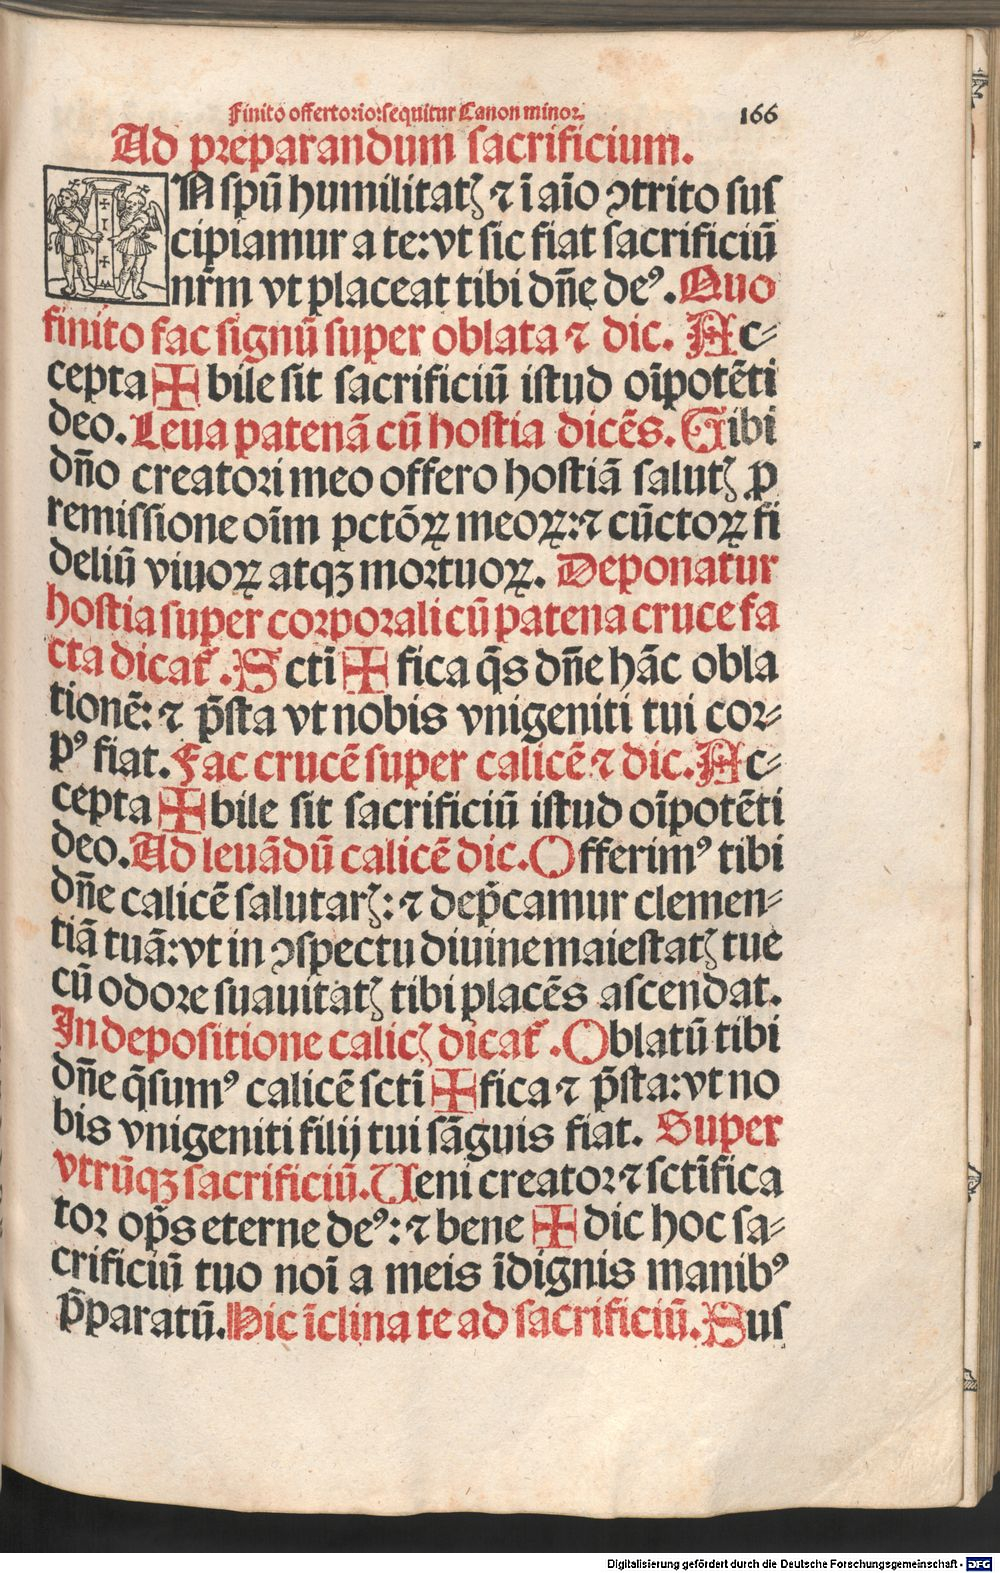 Finito offertorio: sequitur Canon minor.
166
Ad preparandum sacrificium.
IN spũ humilitatꝭ ⁊ ĩ aĩo ꝯtrito sus
cipiamur a te: vt sic fiat sacrificiũ
nr̃m vt placeat tibi dñe deꝰ. Quo
finito fac signũ super oblata ⁊ dic. Ac⸗
cepta ✠ bile sit sacrificiũ istud oĩpotẽti
deo. Leua patenã cũ hostia dicẽs. Tibi
dño creatori meo offero hostiã salutꝭ ꝑ
remissione oĩm pctõꝝ meoꝝ: ⁊ cũctoꝝ fi
deliũ viuoꝝ atqꝫ mortuoꝝ. Deponatur
hostia super corporali cũ patena cruce fa
cta dicat᷑. Sctĩ ✠ fica q̃s dñe hãc obla
tionẽ: ⁊ p̃sta vt nobis vnigeniti tui cor⸗
pꝰ fiat. Fac crucẽ super calicẽ ⁊ dic. Ac⸗
cepta ✠ bile sit sacrificiũ istud oĩpotẽti
deo. Ad leuãdũ calicẽ dic. Offerimꝰ tibi
dñe calicẽ salutarꝭ: ⁊ dep̃camur clemen⸗
tiã tuã: vt in ꝯspectu diuine maiestatꝭ tue
cũ odore suauitatꝭ tibi placẽs ascendat.
In depositione calicꝭ dicat᷑. Oblatũ tibi
dñe q̃sumꝰ calicẽ sctĩ ✠ fica ⁊ p̃sta: vt no
bis vnigeniti filij tui sãguis fiat. Super
vtrũqꝫ sacrificiũ. Ueni creator ⁊ sctĩfica
tor op̃s eterne deꝰ: ⁊ bene ✠ dic hoc sa⸗
crificiũ tuo noĩ a meis ĩdignis manibꝰ
p̃paratũ. Hic ĩclina te ad sacrificiũ. Sus
Digitalisierung gefördert durch die Deutsche Forschungsgemeinschaft - DFG